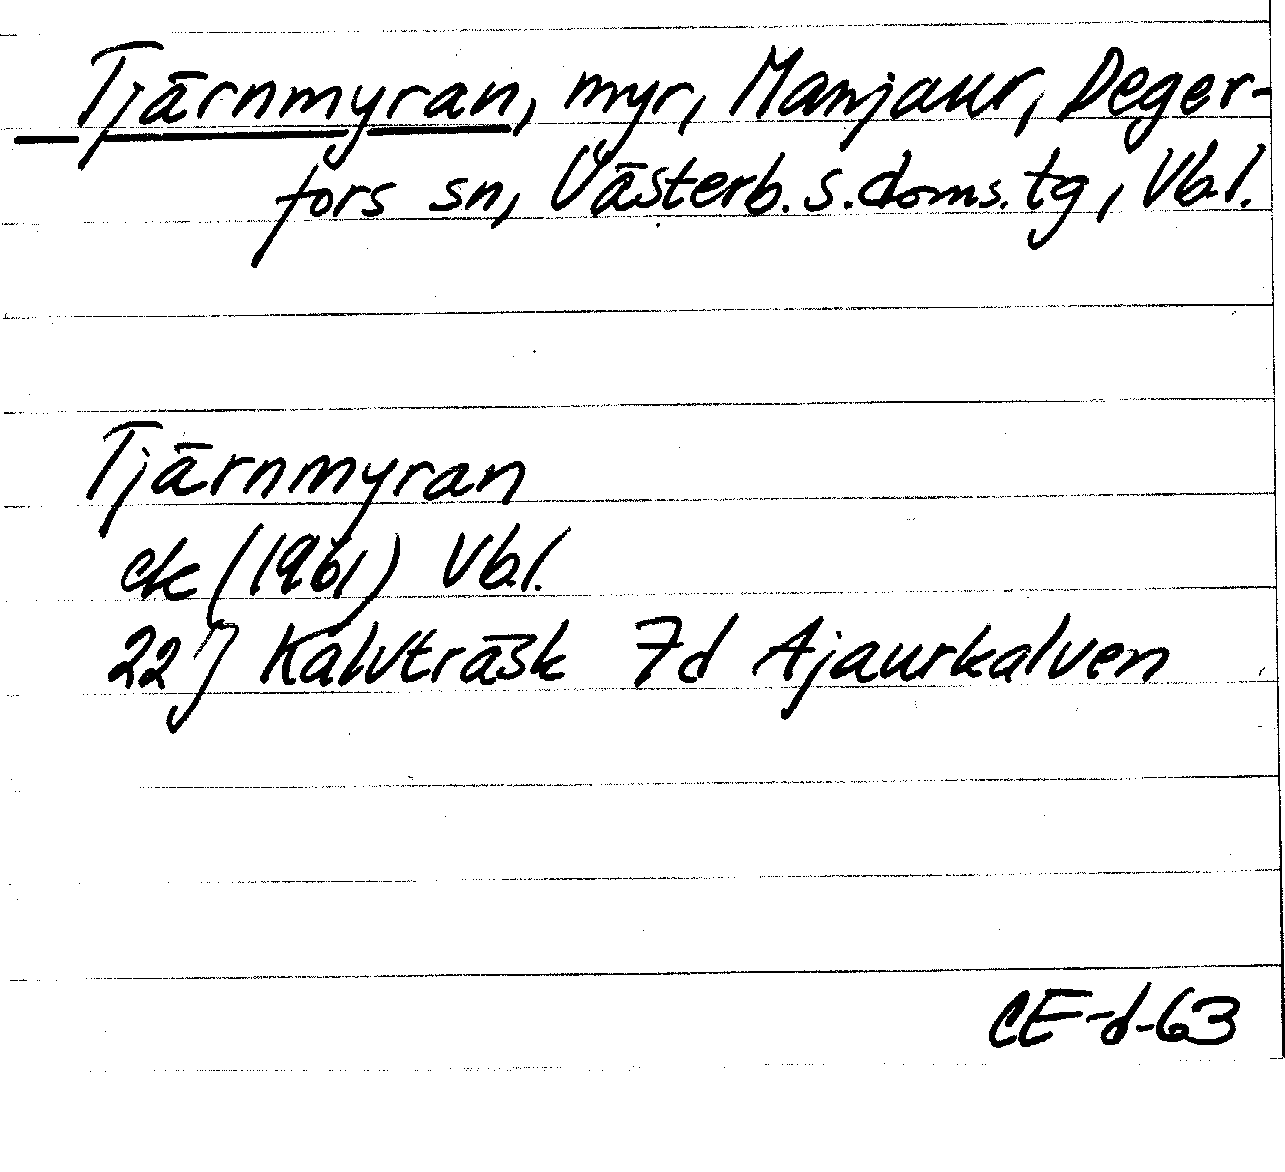 Tjärnmyran, myr, Manjaur, Deger-
fors sn, Västerb. s. doms. tg, Vb.l.
Tjärnmyran
ek (1961) Vb.l.
22 J Kalvträsk 7d Ajaurkalven
CE-d-63